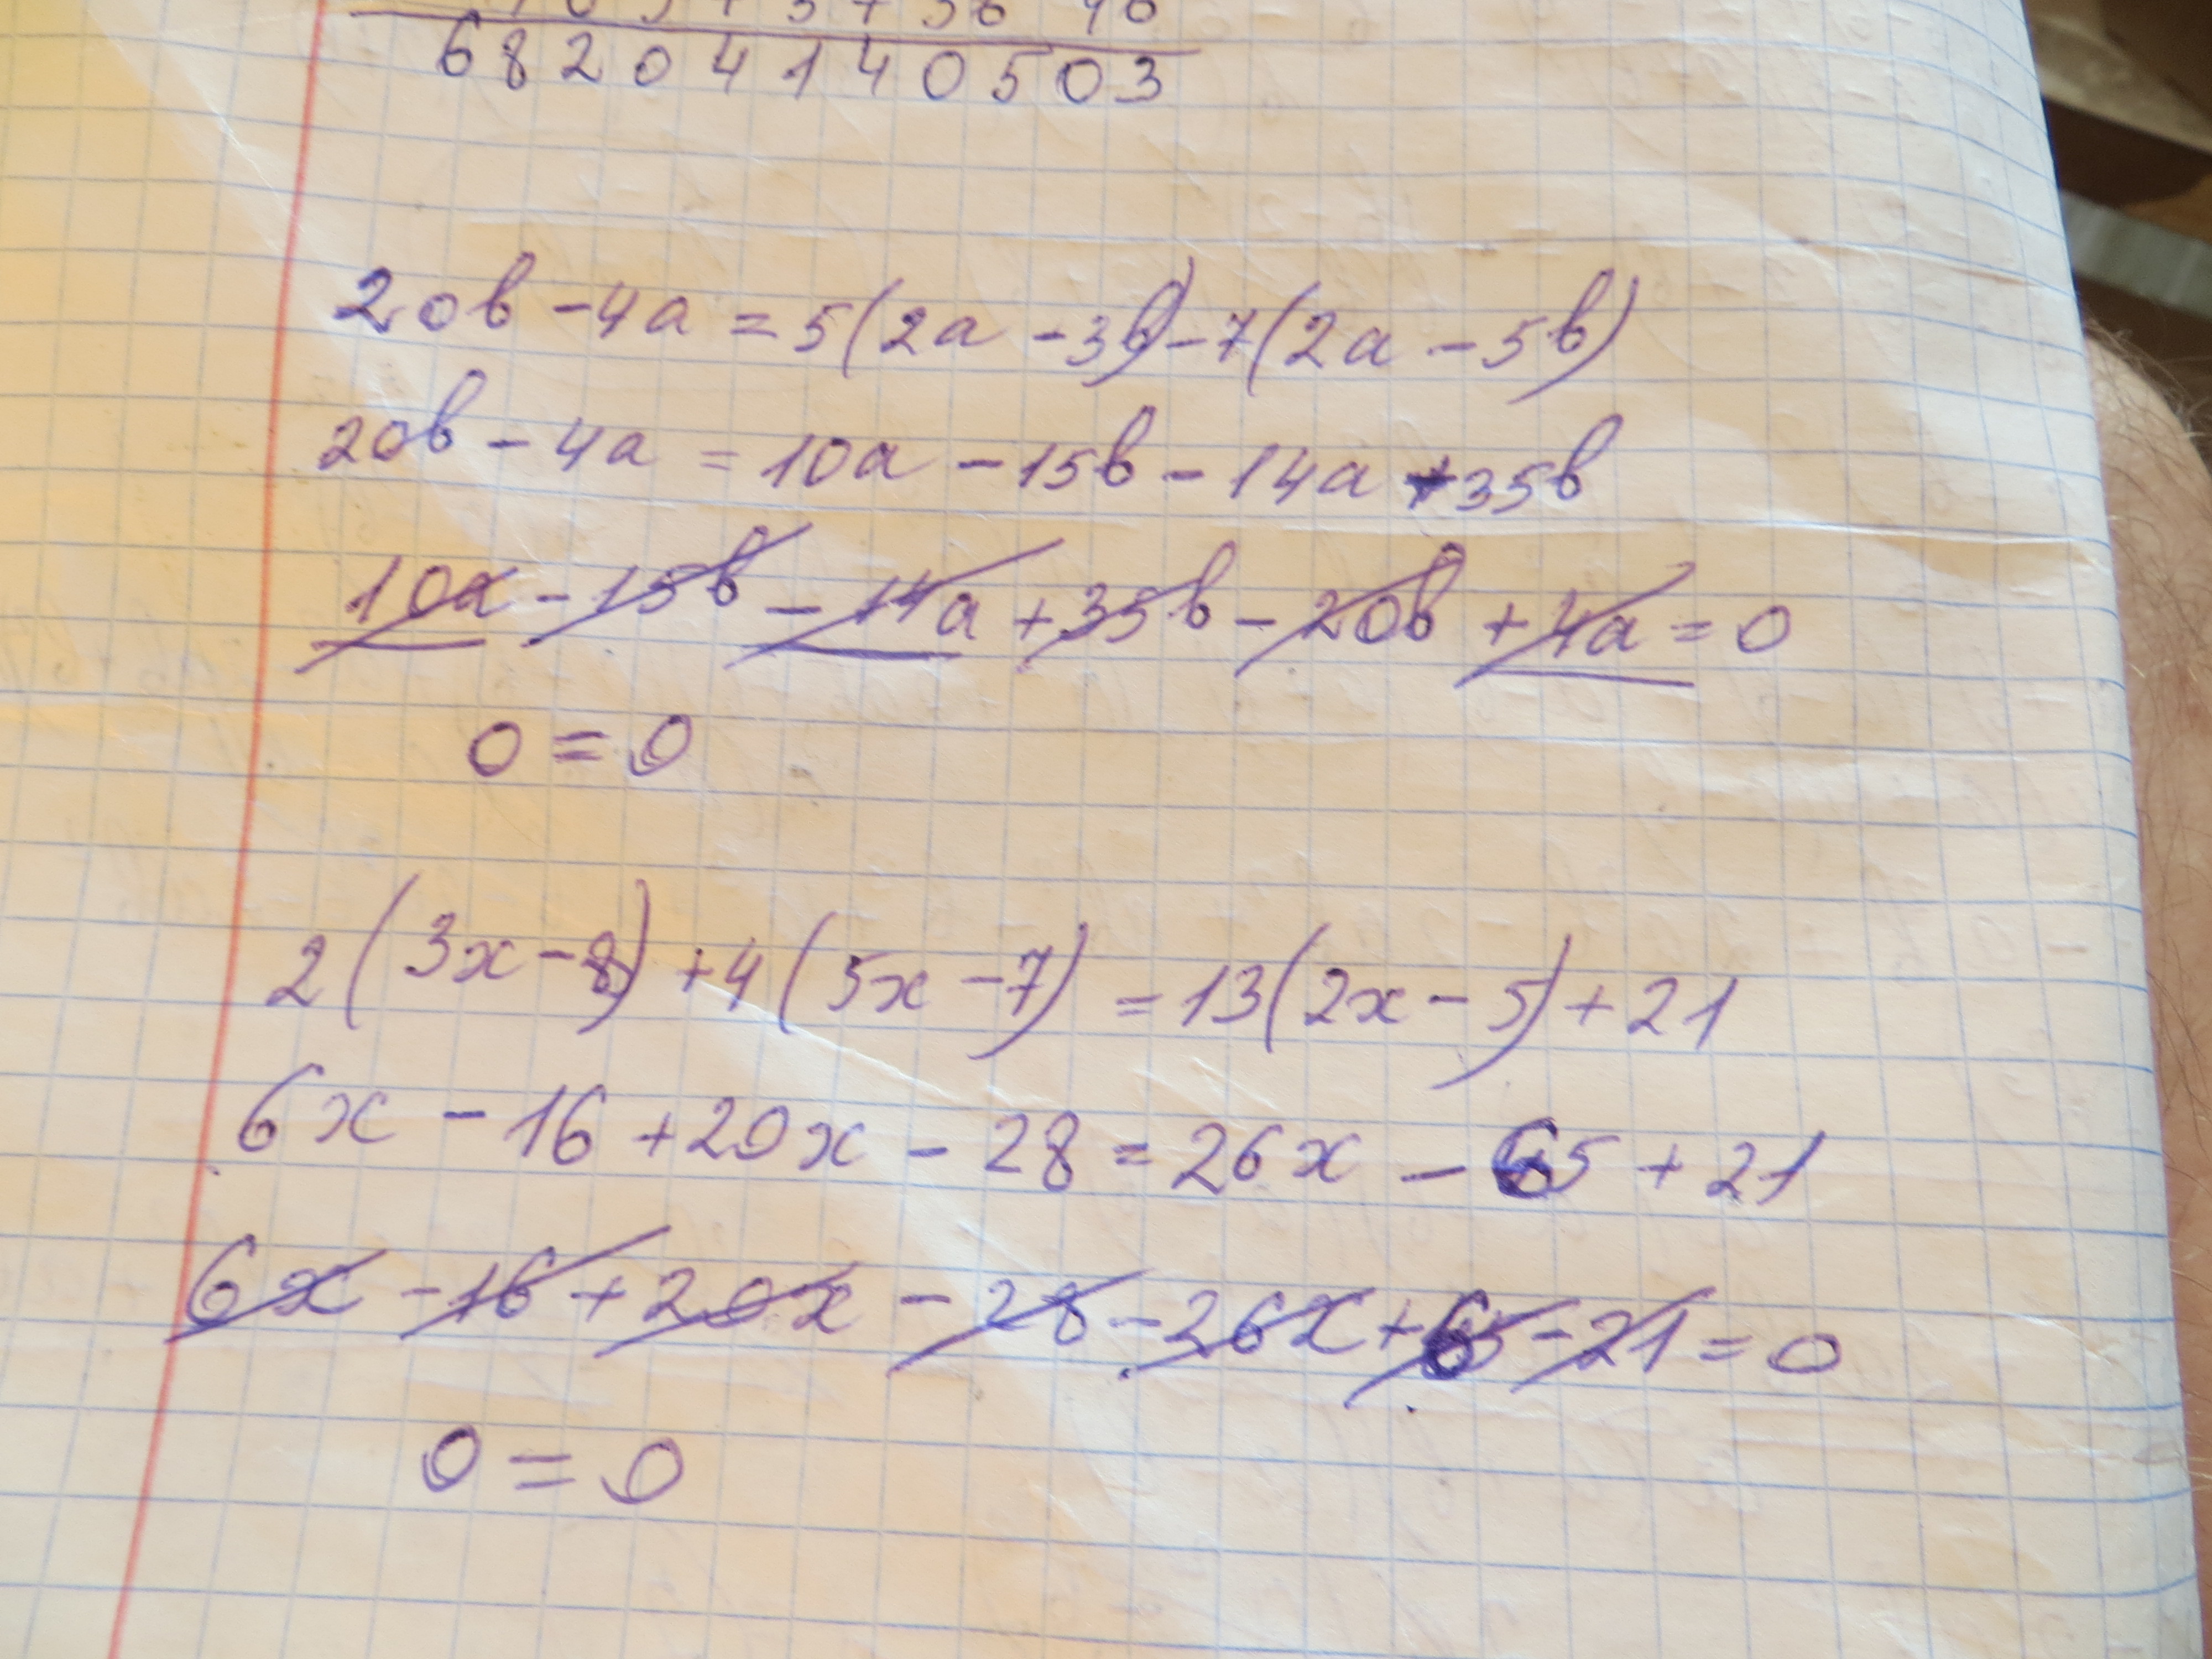 68204140503
20b - 4a = 5(2a - 3b) - 7(2a - 5b)
20b - 4a = 10a - 15b - 14a + 35b
10a - 15b - 14a + 35b - 20b + 4a = 0
0 = 0
2(3x - 8) + 4(5x - 7) = 13(2x - 5) + 21
6x - 16 + 20x - 28 = 26x - 65 + 21
6x - 16 + 20x - 28 - 26x + 65 - 21 = 0
0 = 0